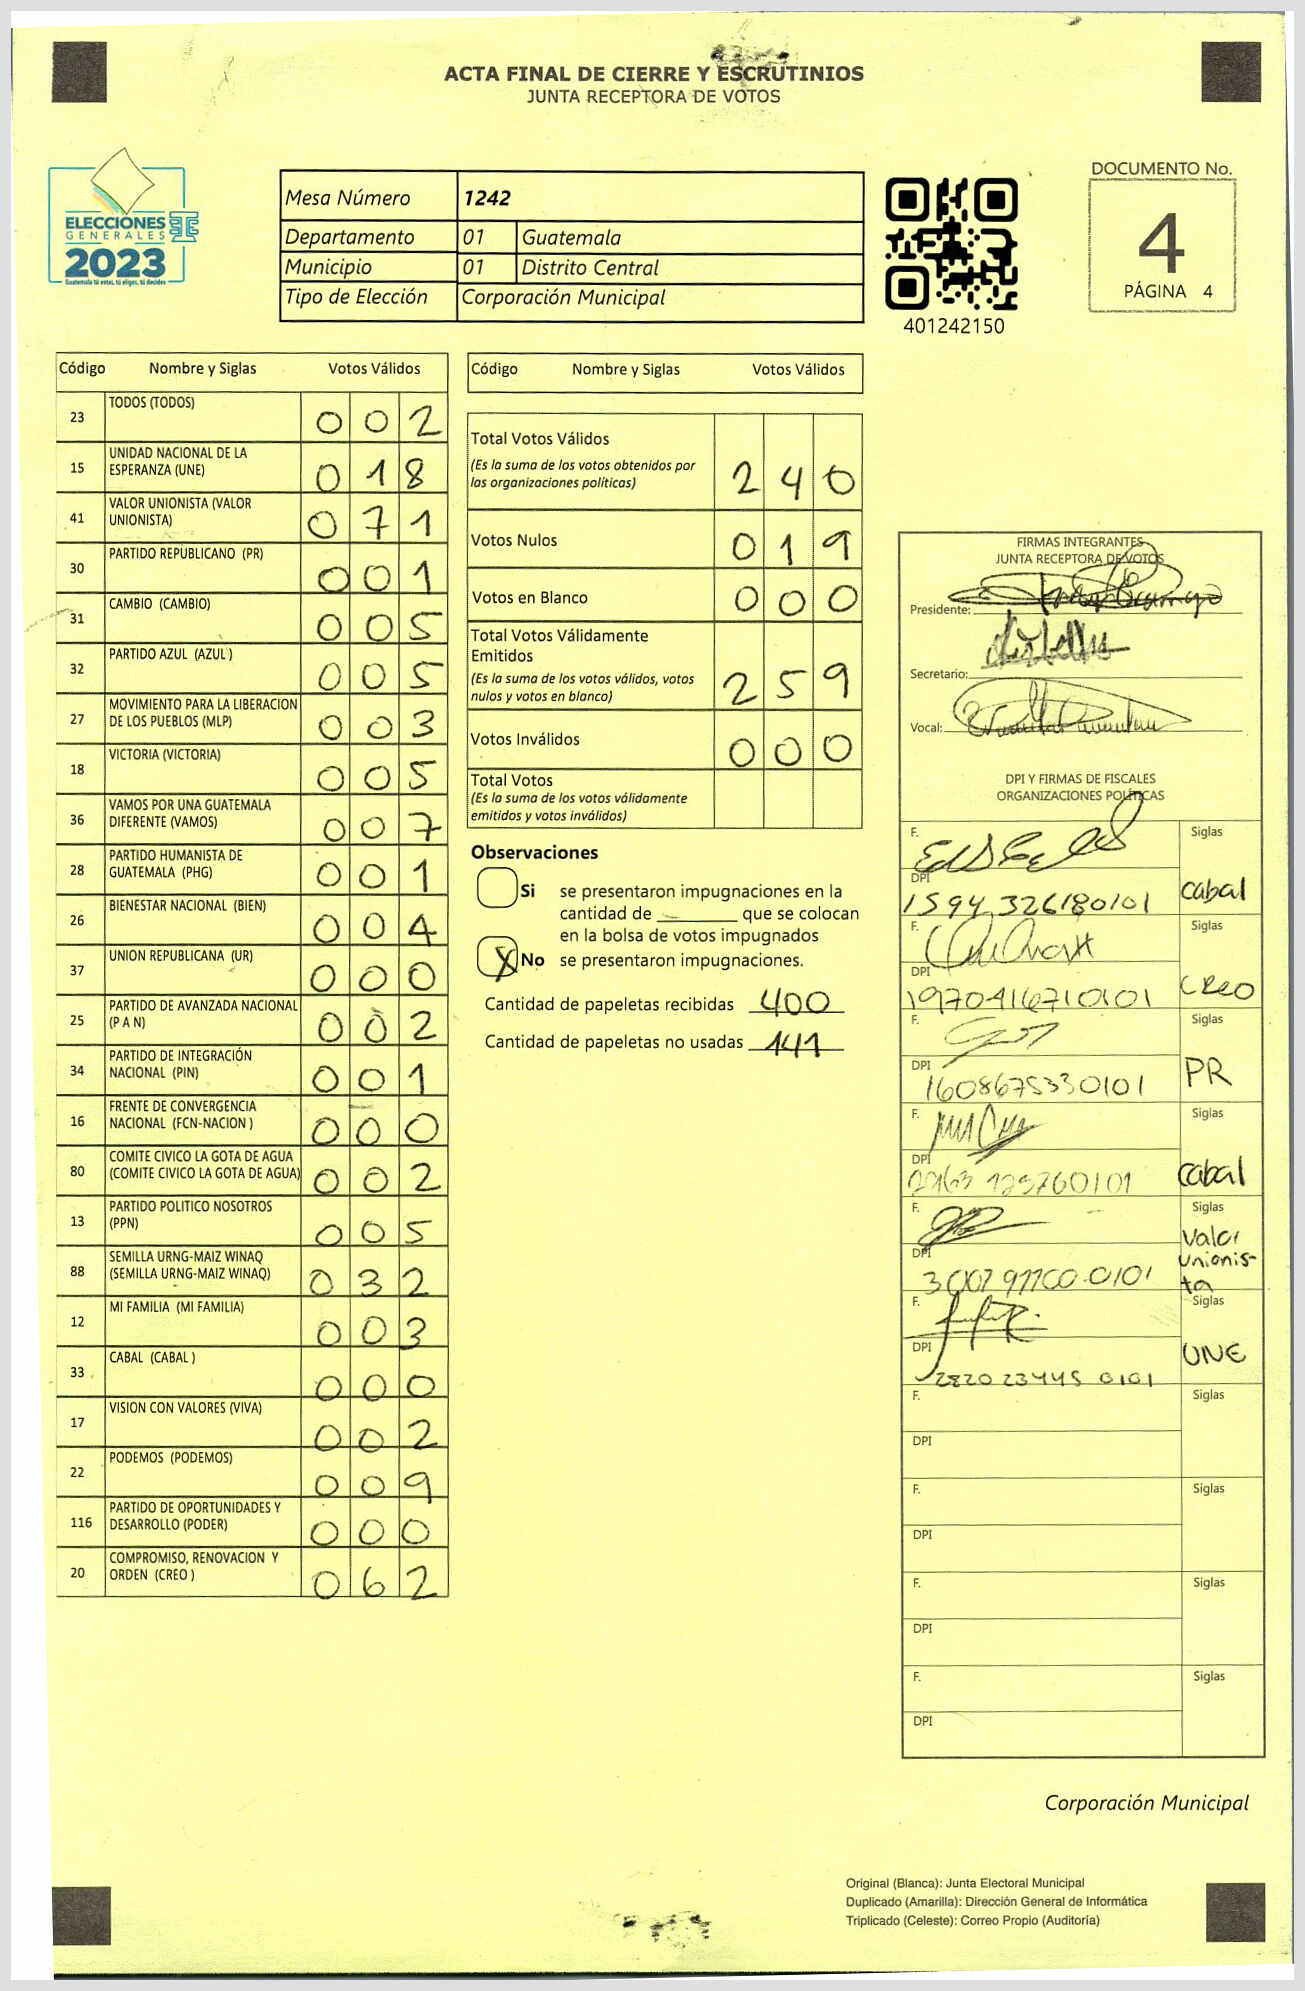 ACTA FINAL DE CIERRE Y ESCRUTINIOS
JUNTA RECEPTORA DE VOTOS
ELECCIONES
GENERALES
2023
Guatemala tú votas, tú eliges, tú decides
Mesa Número 1242
Departamento 01 Guatemala
Municipio 01 Distrito Central
Tipo de Elección Corporación Municipal
401242150
DOCUMENTO No.
4
PÁGINA 4
Código Nombre y Siglas Votos Válidos
23 TODOS (TODOS) 0 0 2
15 UNIDAD NACIONAL DE LA
ESPERANZA (UNE) 0 1 8
41 VALOR UNIONISTA (VALOR
UNIONISTA) 0 7 1
30 PARTIDO REPUBLICANO (PR) 0 0 1
31 CAMBIO (CAMBIO) 0 0 5
32 PARTIDO AZUL (AZUL ) 0 0 5
27 MOVIMIENTO PARA LA LIBERACION
DE LOS PUEBLOS (MLP) 0 0 3
18 VICTORIA (VICTORIA) 0 0 5
36 VAMOS POR UNA GUATEMALA
DIFERENTE (VAMOS) 0 0 7
28 PARTIDO HUMANISTA DE
GUATEMALA (PHG) 0 0 1
26 BIENESTAR NACIONAL (BIEN) 0 0 4
37 UNION REPUBLICANA (UR) 0 0 0
25 PARTIDO DE AVANZADA NACIONAL
(P A N) 0 0 2
34 PARTIDO DE INTEGRACIÓN
NACIONAL (PIN) 0 0 1
16 FRENTE DE CONVERGENCIA
NACIONAL (FCN-NACION ) 0 0 0
80 COMITE CIVICO LA GOTA DE AGUA
(COMITE CIVICO LA GOTA DE AGUA) 0 0 2
13 PARTIDO POLITICO NOSOTROS
(PPN) 0 0 5
88 SEMILLA URNG-MAIZ WINAQ
(SEMILLA URNG-MAIZ WINAQ) 0 3 2
12 MI FAMILIA (MI FAMILIA) 0 0 3
33 CABAL (CABAL ) 0 0 0
17 VISION CON VALORES (VIVA) 0 0 2
22 PODEMOS (PODEMOS) 0 0 9
116 PARTIDO DE OPORTUNIDADES Y
DESARROLLO (PODER) 0 0 0
20 COMPROMISO, RENOVACION Y
ORDEN (CREO ) 0 6 2
Código Nombre y Siglas Votos Válidos
Total Votos Válidos
(Es la suma de los votos obtenidos por
las organizaciones políticas) 2 4 0
Votos Nulos 0 1 9
Votos en Blanco 0 0 0
Total Votos Válidamente
Emitidos
(Es la suma de los votos válidos, votos
nulos y votos en blanco) 2 5 9
Votos Inválidos 0 0 0
Total Votos
(Es la suma de los votos válidamente
emitidos y votos inválidos)
Observaciones
Si se presentaron impugnaciones en la
cantidad de ________ que se colocan
en la bolsa de votos impugnados
X No se presentaron impugnaciones.
Cantidad de papeletas recibidas 400
Cantidad de papeletas no usadas 141
FIRMAS INTEGRANTES
JUNTA RECEPTORA DE VOTOS
Presidente:
Secretario:
Vocal:
DPI Y FIRMAS DE FISCALES
ORGANIZACIONES POLÍTICAS
F. Siglas
DPI
1594 32618 0101 Cabal
F. Siglas
DPI
1970416710101 CREO
F. Siglas
DPI
1608675330101 PR
F. Siglas
DPI
Cabal
F. Siglas
DPI
Valor
Unionis-
ta
F. Siglas
DPI
2820 23445 0101 UNE
F. Siglas
DPI
F. Siglas
DPI
F. Siglas
DPI
F. Siglas
DPI
Corporación Municipal
Original (Blanca): Junta Electoral Municipal
Duplicado (Amarilla): Dirección General de Informática
Triplicado (Celeste): Correo Propio (Auditoría)